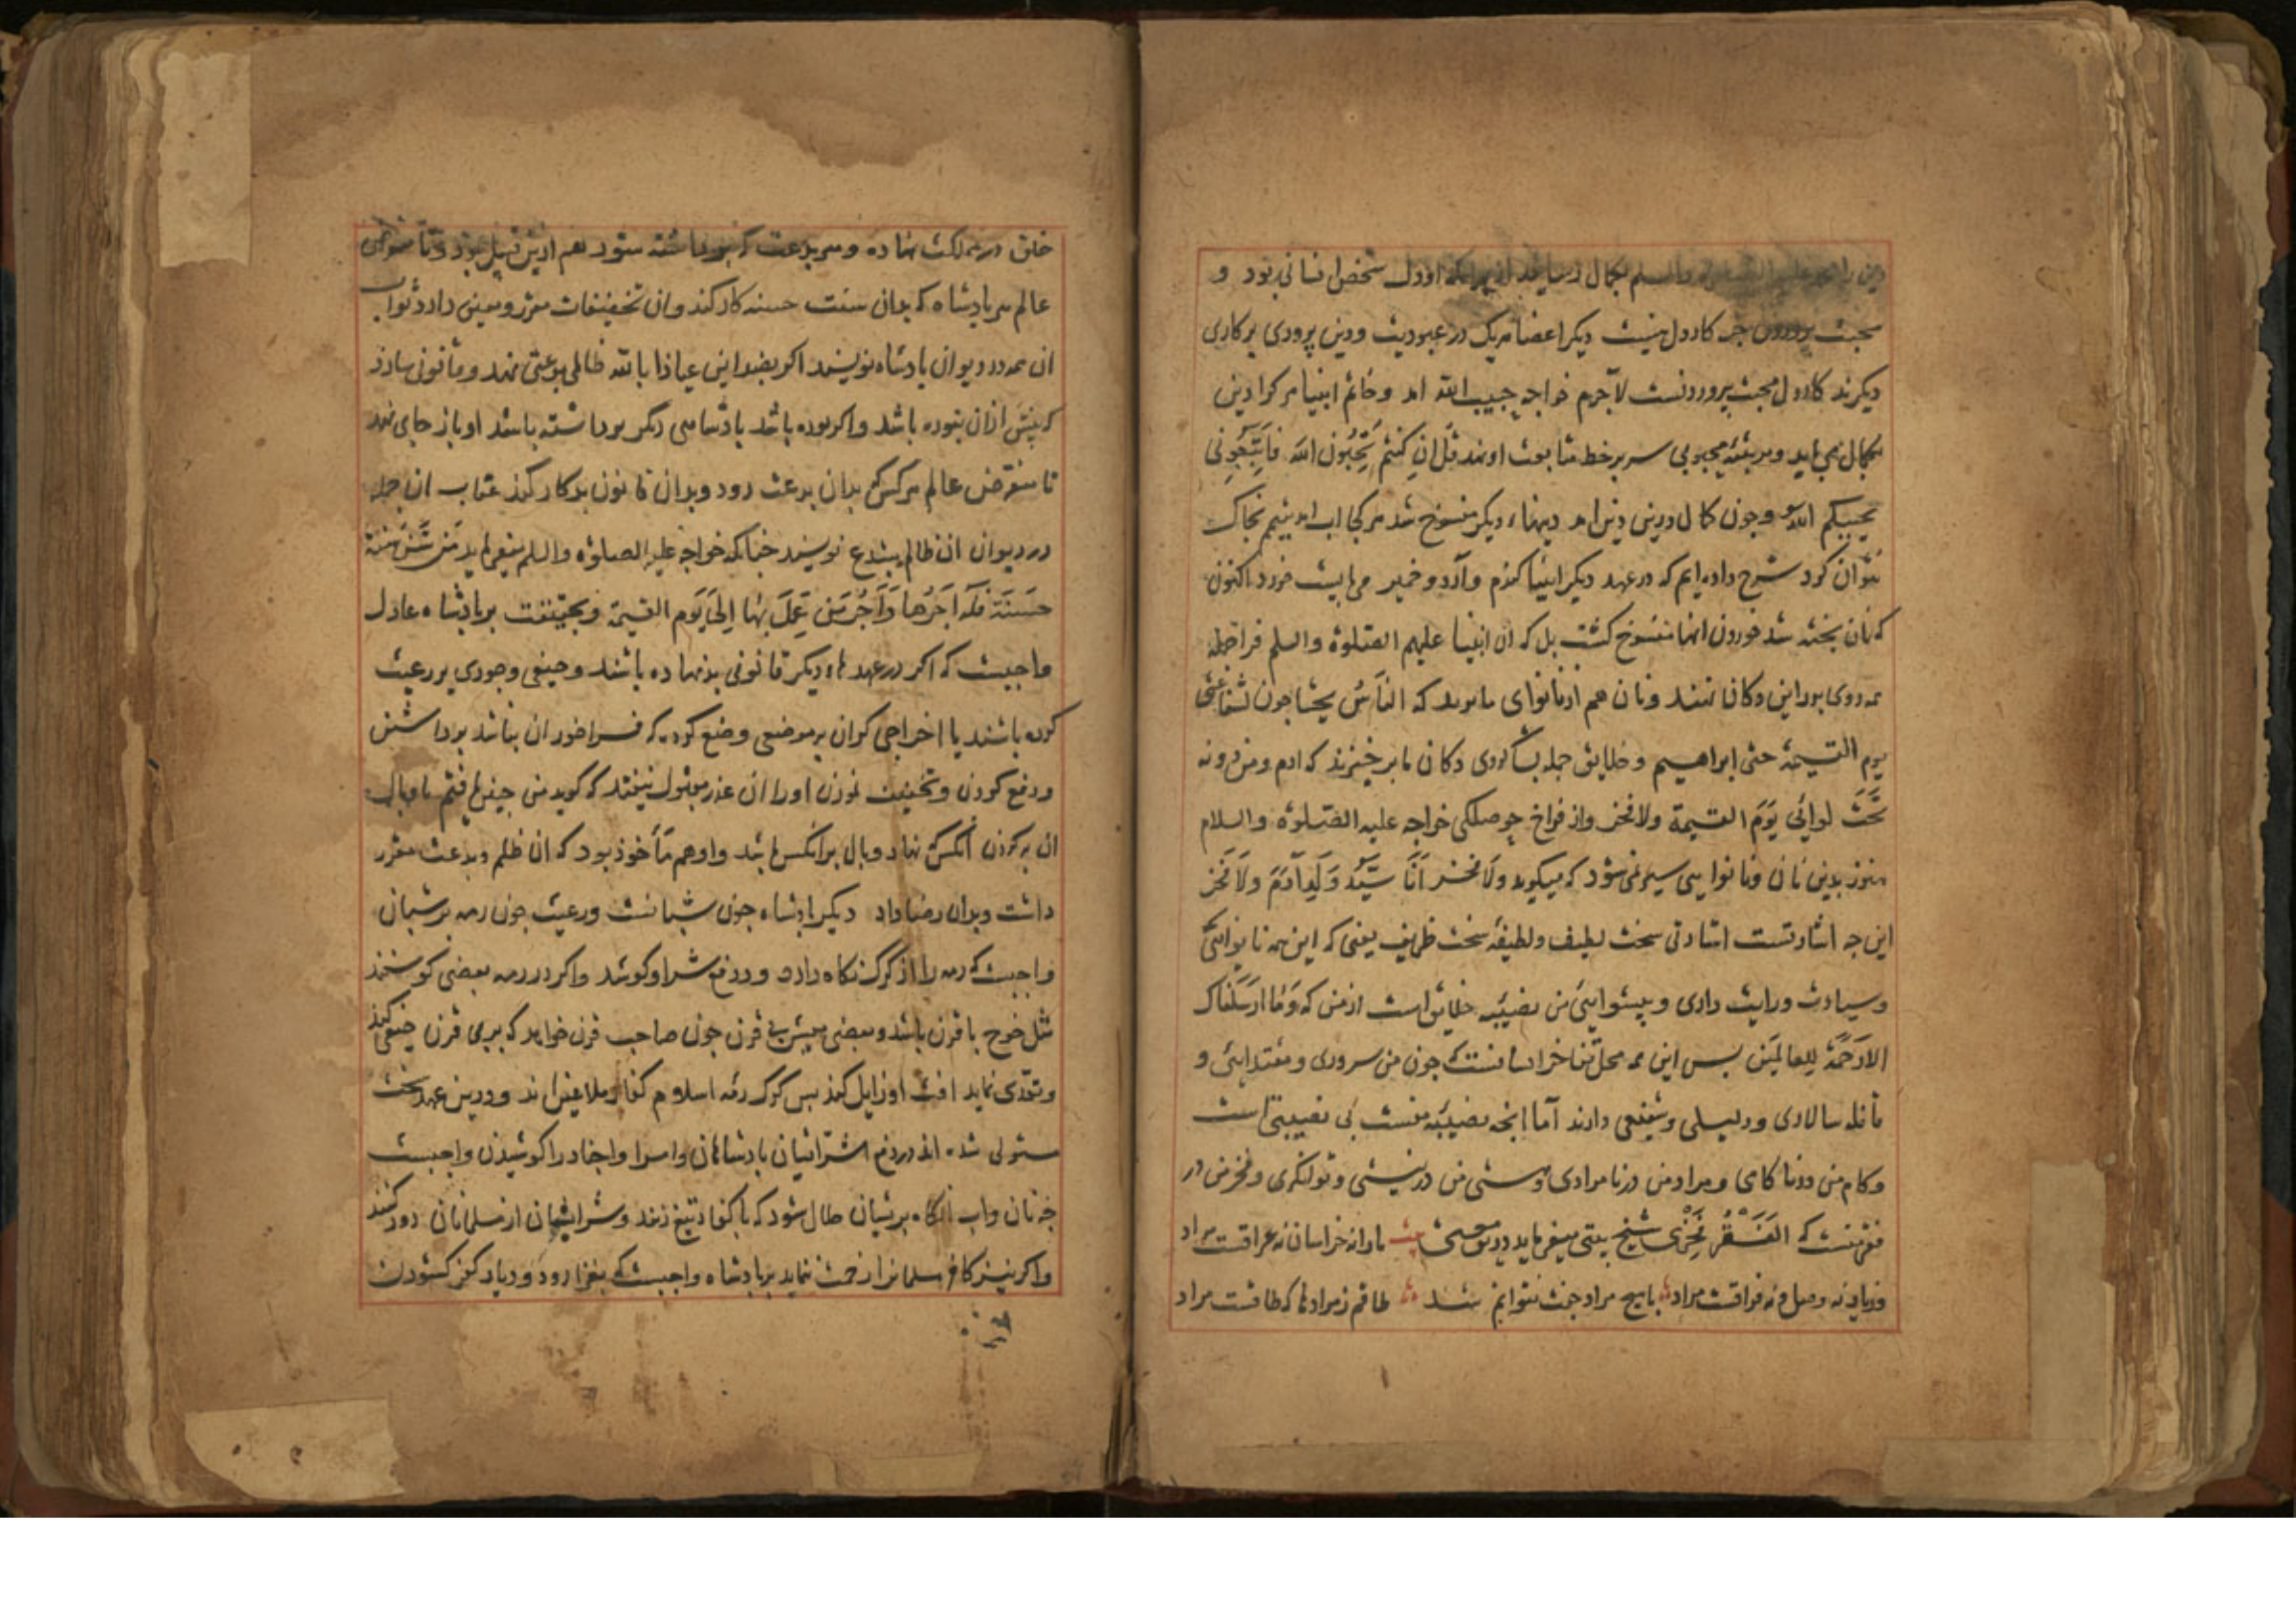 دین را خواجه علیه الصلوة والسلم بکمال رسانید از بهر آنکه او دل شخص انسانی بود و
محبت پروردن جز کار دل نیست دیکر اعضا هریک در عبودیت و دین پروری بر کاری
دیکرند کار دل محبت پروردنست لاجرم خواجه حبیب الله امد و خاتم انبیا هر کرا دین
بکمال می باید و مرتبه محبوبی سر بر خط متابعت او نهد قل ان کنتم تحبون الله فاتبعونی
یحببکم الله و جون کمال دین درین دین امد دینهاء دیکر منسوخ شد هر کجا اب امد تیمم بخاک
نتوان کرد شرح داده ایم که در عهد دیکر انبیا کندم و آرد و خمیر می بایست خورد اکنون
که نان پخته شد خوردن انها منسوخ کشت بل که ان انبیا علیهم الصلوة والسلم فراجمله
همه روی بر این دکان نهند و نان هم از نانوای ما برند که الناس یحتاجون لشفاعتی
یوم القیمة حتی ابراهیم و خلایق جمله بشاکردی دکان ما برخیزند که ادم و من دونه
تحت لوائی یوم القیمة ولا فخر و از فراخ حوصلکی خواجه علیه الصلوة والسلام
هنوز بدین نان و نانوایی سیر نمی شود که میکوید ولا فخر انا سید ولد آدم ولا فخر
این جه اشارتست اشارتی سخت لطیف و لطیفه سخت ظریف یعنی که این همه نانوائی
و سیادت و رایت داری و پیشوایئ من نصیبه خلایق است از من که وما ارسلناک
الا رحمة للعالمین پس این همه محل تفاخر ایشانست که جون من سروری و مقتدایی و
قافله سالاری و دلیلی و شفیعی دارند اما انجه نصیبه منست بی نصیبتی است
و کام من در ناکامی و مراد من در نامرادی و هستی من در نیستی و توانکری و فخر من در
فقر منست که الفقر فخری شیخ بیتی میفرماید درین معنی بیت ما را نه خراسان نه عراقست مراد
وزیار نه وصل و نه فراقست مراد با هیچ مراد جفت نتوانم شد طاقم ز مرادها که طاقست مراد
خلق در مملکت نهاده و هر بدعت که برداشته شود هم ازین قبیل بود و تا منقرض
عالم هر پادشاه که بدان سنت حسنه کار کند و ان تخفیفات مقرر و معین دارد ثواب
ان همه در دیوان پادشاه نویسند اکر بضد این عیاذا بالله ظالمی بدعتی نهد و قانونی سازد
که پیش ازان نبوده باشد و اکر بوده باشد پادشاهی دیکر برداشته باشد او باز جای نهد
تا منقرض عالم هر کس که بدان بدعت رود و بدان قانون بد کار کند عقاب ان جمله
در دیوان ان ظالم مبتدع نویسند جنانکه خواجه علیه الصلوة والسلم میفرماید من سن سنة
حسنة فله اجرها و اجر من عمل بها الی یوم القیمة و بحقیقت بر پادشاه عادل
واجبست که اکر در عهدهاء دیکر قانونی بد نهاده باشند و حیفی و جوری بر رعیت
کرده باشند یا اخراجی کران بر موضعی وضع کرده که فراخور ان نباشد برداشتن
و دفع کردن و تخفیف نمودن او را ان عذر مقبول نیفتد که کوید من جنین یافتم تا وبال
ان بر کردن آنکس که نهاد وبال بر انکس باشد و او هم مأخوذ بود که ان ظلم و بدعت مقرر
داشت و بدان رضا داد دیکر پادشاه جون شبانست و رعیت جون رمه بر شبان
واجبست که رمه را از کرک نکاه دارد و در دفع شر او کوشد و اکر در رمه بعضی کوسفند
مثل قوج با قرن باشد و بعضی میش بی قرن جون صاحب قرن خواهد که بر بی قرن حیفی کند
و تعدی نماید افت او زایل کند پس کرک رمه اسلام کفار ملاعین اند و درین عهد سخت
مستولی شده اند در دفع شر ایشان پادشاهان و امرا و اجناد را کوشیدن واجبست
جه نان و اب انکاه بریشان حلال شود که با کفار تیغ زنند و شر ایشان از مسلمانان دور کنند
و اکر نیز کافر مسلمانرا زحمت ننماید بر پادشاه واجبست که بغزا رود و دیار کفر کشودن